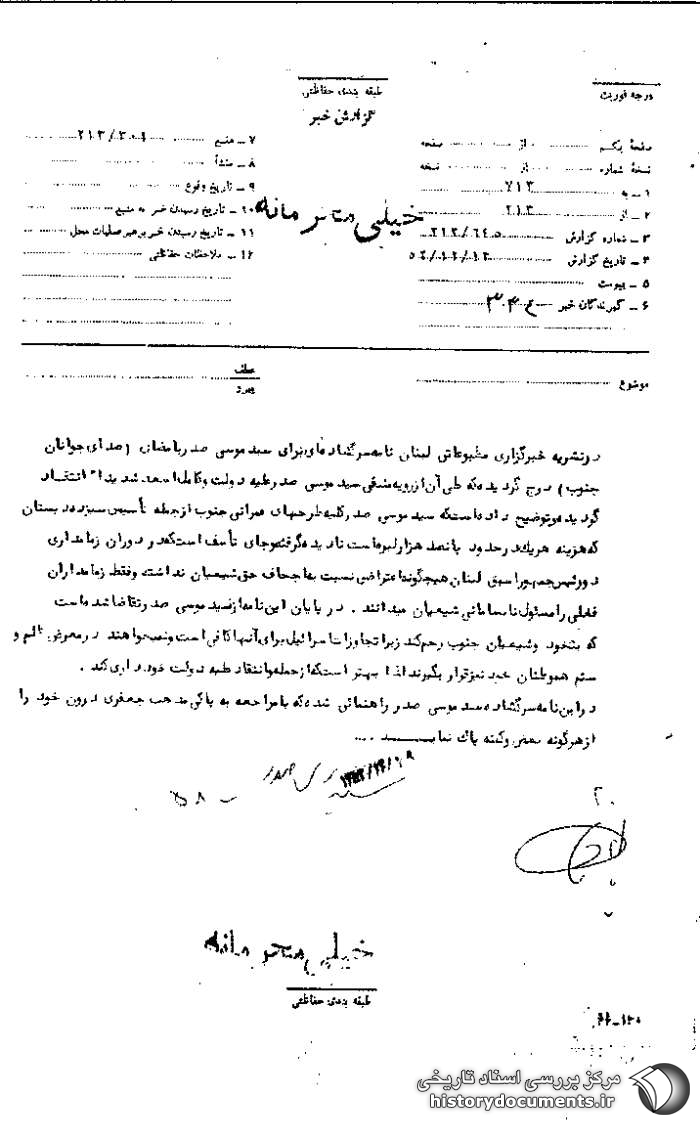 درجه فوریت
طبقه بندی حفاظتی
گزارش خبر
صفحه یکم از صفحه
نسخه شماره از نسخه
۱ – به ۷۱۳
۲ – از ۲۱۳
۳ – شماره گزارش ۲۱۳/۶۴۵
۴ – تاریخ گزارش
۵ – پیوست
۶ – گیرندگان خبر
۷ – منبع ۲۱۳/۳۰۹
۸ – منشأ
۹ – تاریخ وقوع
۱۰ – تاریخ رسیدن خبر به منبع
۱۱ – تاریخ رسیدن خبر برهبر عملیات محل
۱۲ – ملاحظات حفاظتی
خیلی محرمانه
موضوع
عطف
پیرو
درنشریه خبرگزاری مطبوعاتی لبنان نامه سرگشاده‌ای برای سید موسی صدر بامضای (صدای جوانان
جنوب) درج گردیده که طی آن از رویه منفی سید موسی صدر علیه دولت وکامل اسعد شدیدا" انتقاد
گردیده وتوضیح داده است که سید موسی صدر کلیه طرحهای عمرانی جنوب ازجمله تأسیس سیزده دبستان
که هزینه هریک در حدود پانصد هزار لیره است نادیده گرفته وجای تأسف است که در دوران زمامداری
دو رئیس جمهور اسبق لبنان هیچگونه اعتراضی نسبت به اجحاف حق شیعیان نداشته وفقط زمامداران
فعلی را مسئول نابسامانی شیعیان میدانند . در پایان این نامه از سید موسی صدر تقاضا شده است
که بخود وشیعیان جنوب رحم کند زیرا تجاوزات اسرائیل برای آنها کافی است ونمیخواهند در معرض ظلم و
ستم هموطنان خود نیز قرار بگیرند لذا بهتر است که از حمله وانتقاد علیه دولت خودداری کند .
در این نامه سرگشاده سید موسی صدر راهنمائی شده که با مراجعه به پاکی مذهب جعفری درون خود را
از هرگونه بغض وکینه پاک نمایـــــد ....
خیلی محرمانه
طبقه بندی حفاظتی
مرکز بررسی اسناد تاریخی
historydocuments.ir